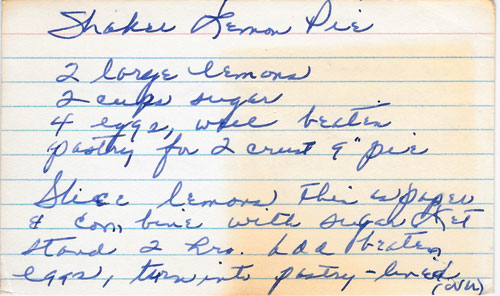 Shaker Lemon Pie
2 large lemons
2 cups sugar
4 eggs, well beaten
pastry for 2 crust 9" pie
Slice lemons thin as paper
& combine with sugar let
stand 2 hrs. Add beaten
eggs, turn into pastry-lined
(over)